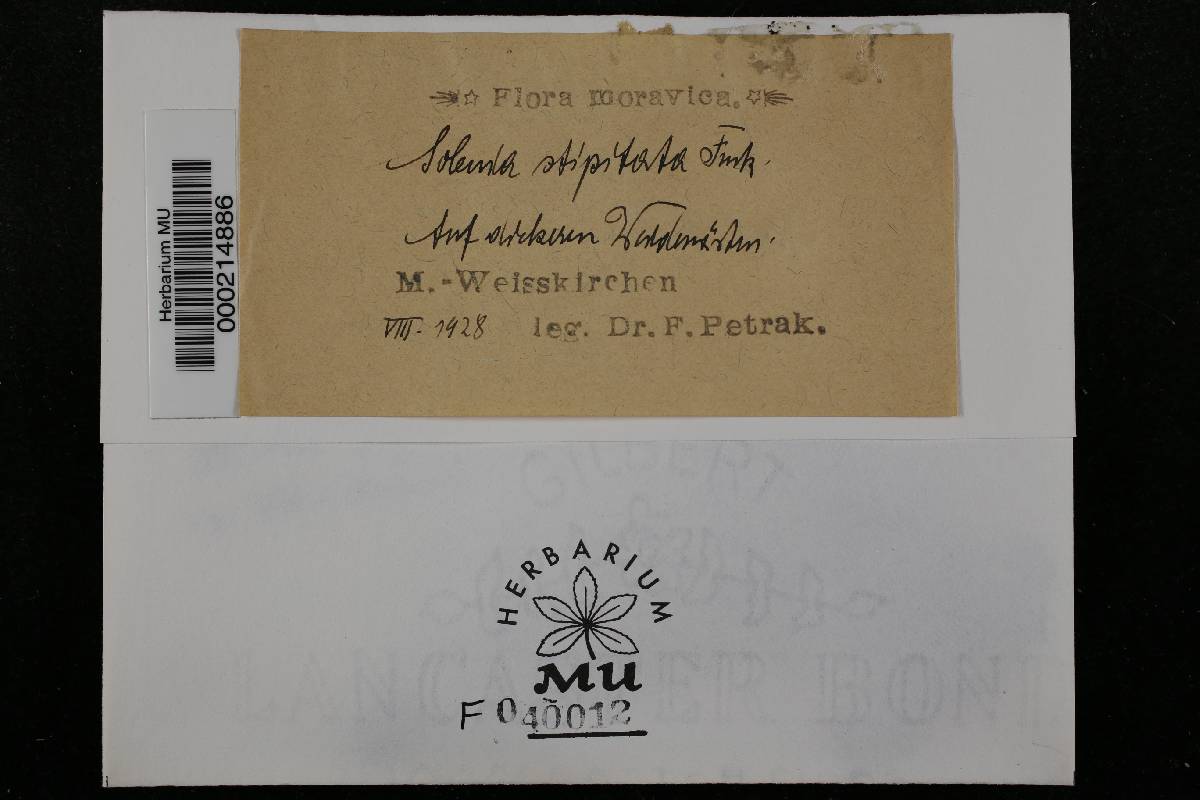 Flora moravica.
Solenia stipitata Fuck.
Auf dickeren Weidenästen.
M.-Weisskirchen
VIII. 1928 leg. Dr. F. Petrak.
Herbarium MU
000214886
HERBARIUM
MU
F 040012